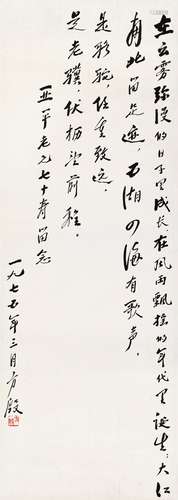 在云雾弥漫的日子里成长在风雨飘摇的年代里诞生；大江
南北留足迹，五湖四海有歌声。
是骆驼，任重致远，
是老骥，伏枥望前程。
亚平老兄七十寿留念
一九七五年三月方殷